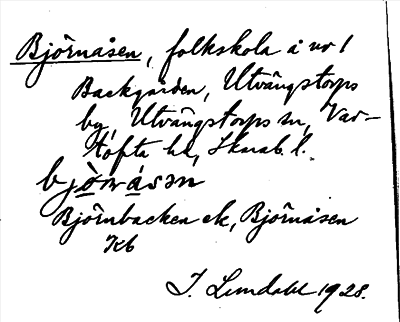 Björnåsen, folkskola å nr 1
Backgården, Utvängstorps
by, Utvängstorps sn, Var-
tofta hd, Skarab. l.
bjò̱ṉásən
Björnbacken ek, Björnåsen
Kb
J. Lundahl 1928.